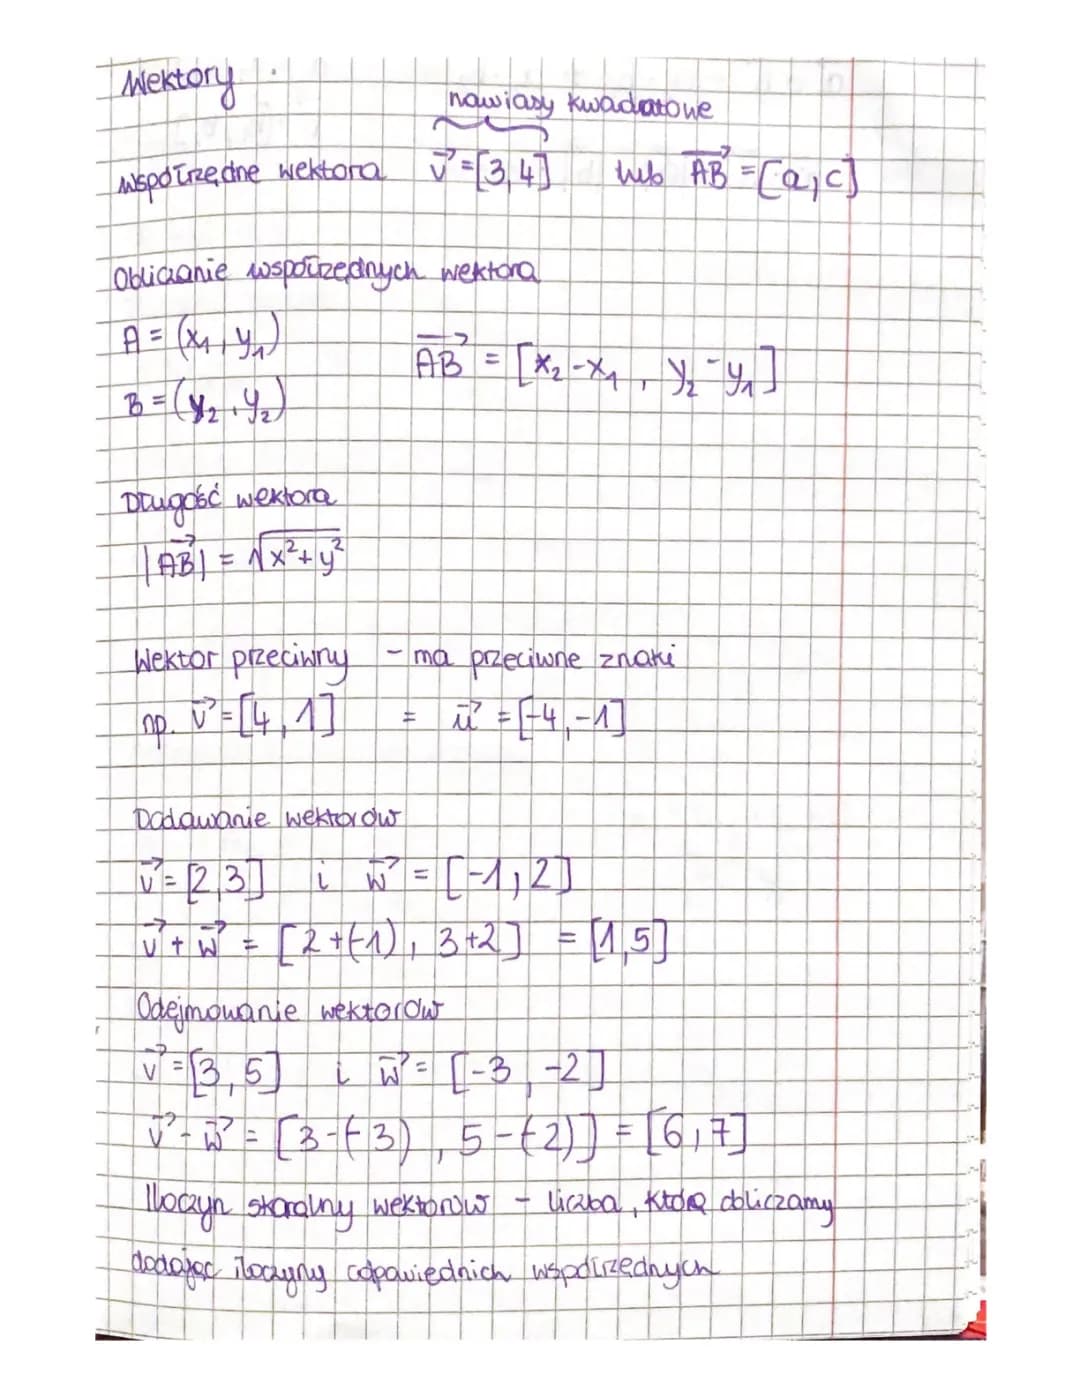 Wektory
nawiasy kwadratowe
współrzędne wektora v⃗ = [3,4] lub AB⃗ = [a,c]
Obliczanie współrzędnych wektora
A = (x₁, y₁)
AB⃗ = [x₂-x₁, y₂-y₁]
B = (y₂, y₂)
Długość wektora
|AB⃗| = √x²+y²
Wektor przeciwny - ma przeciwne znaki
np. v⃗ = [4,1] = u⃗ = [-4,-1]
Dodawanie wektorów
v⃗ = [2,3] i w⃗ = [-1,2]
v⃗ + w⃗ = [2+(-1), 3+2] = [1,5]
Odejmowanie wektorów
v⃗ = [3,5] i w⃗ = [-3,-2]
v⃗ - w⃗ = [3-(-3), 5-(-2)] = [6,7]
Iloczyn skaralny wektorów - liczba, którą obliczamy
dodając iloczyny odpowiednich współrzędnych